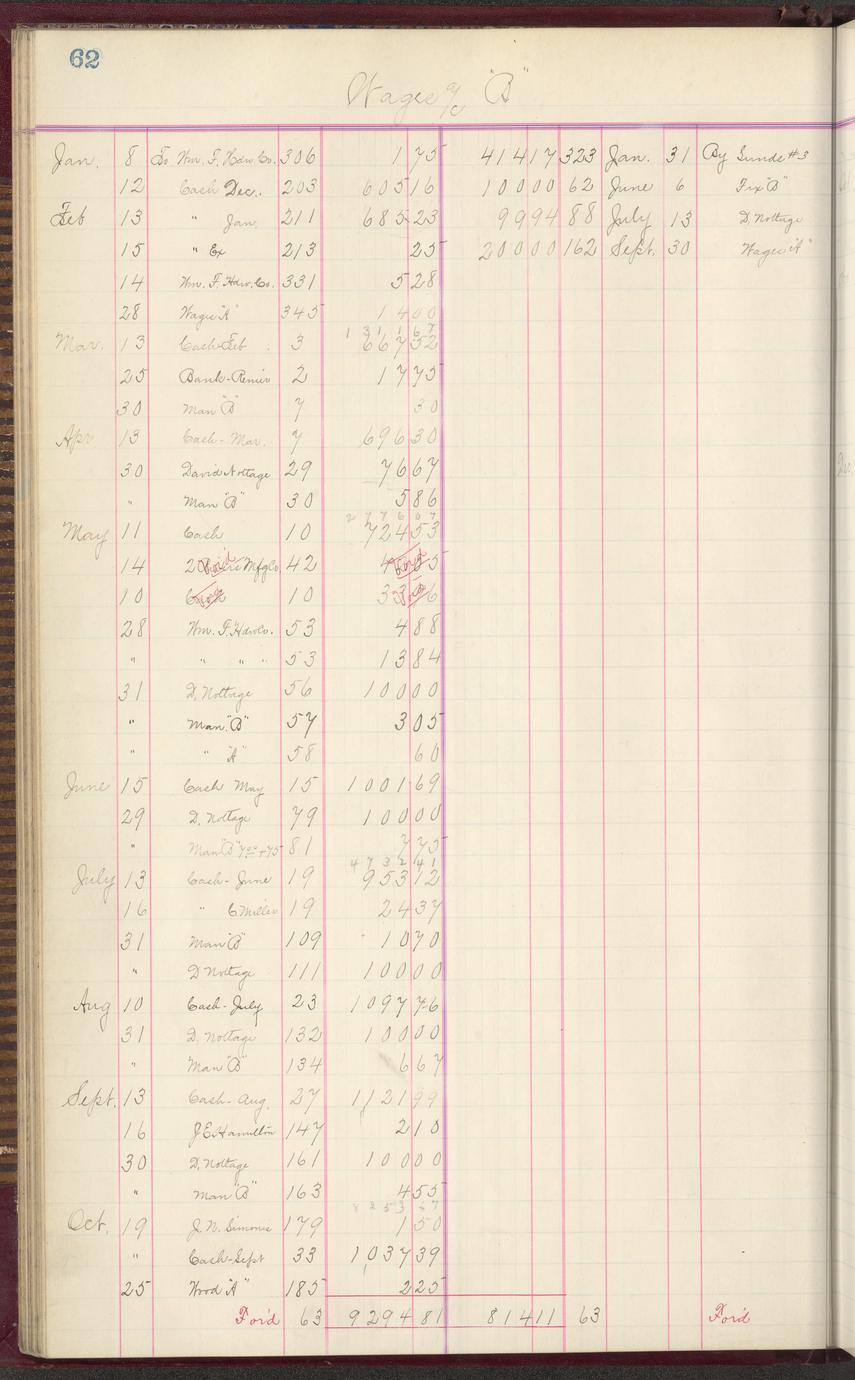 62
Wages a/c "B"
Jan. 8 To Wm. F. Hdw. Co. 306 1 75 414 17 323 Jan. 31 By Sunds #3
12 Cash Dec. 203 605 16 100 00 62 June 6 Fix "B"
Feb 13 " Jan. 211 685 23 99 94 88 July 13 D. Nottage
15 " Ex 213 25 200 00 162 Sept. 30 Wages "A"
14 Wm. F. Hdw. Co. 331 5 28
28 Wages "A" 345 14 00
1 31 1 67
Mar. 13 Cash-Feb 3 667 52
25 Bank- 2 17 75
30 Man "B" 7 30
Apr 13 Cash-Mar. 7 696 30
30 David Nottage 29 76 67
" Man "B" 30 5 86
2 7 7 6 0 7
May 11 Cash 10 724 53
14 Void Mfg Co. 42 Void
10 Void 10 Void
28 Wm. F. Hdw Co. 53 4 88
" " " " 53 13 84
31 D. Nottage 56 100 00
" Man. "B" 57 3 05
" " "A" 58 60
June 15 Cash May 15 1001 69
29 D. Nottage 79 100 00
" Man "B" 7 00 + 75 81 7 75
4 7 3 2 4 1
July 13 Cash-June 19 953 12
16 " C Miller 19 24 37
31 Man "B" 109 10 70
" D Nottage 111 100 00
Aug 10 Cash-July 23 1097 76
31 D. Nottage 132 100 00
" Man "B" 134 6 67
Sept. 13 Cash-Aug. 27 1121 99
16 J E Hamilton 147 2 10
30 D. Nottage 161 100 00
" Man "B" 163 4 55
8 2 5 3 6 7
Oct. 19 J. N. Simons 179 1 50
" Cash-Sept 33 1037 39
25 Wood "A" 185 2 25
For'd 63 9294 81 814 11 63 For'd